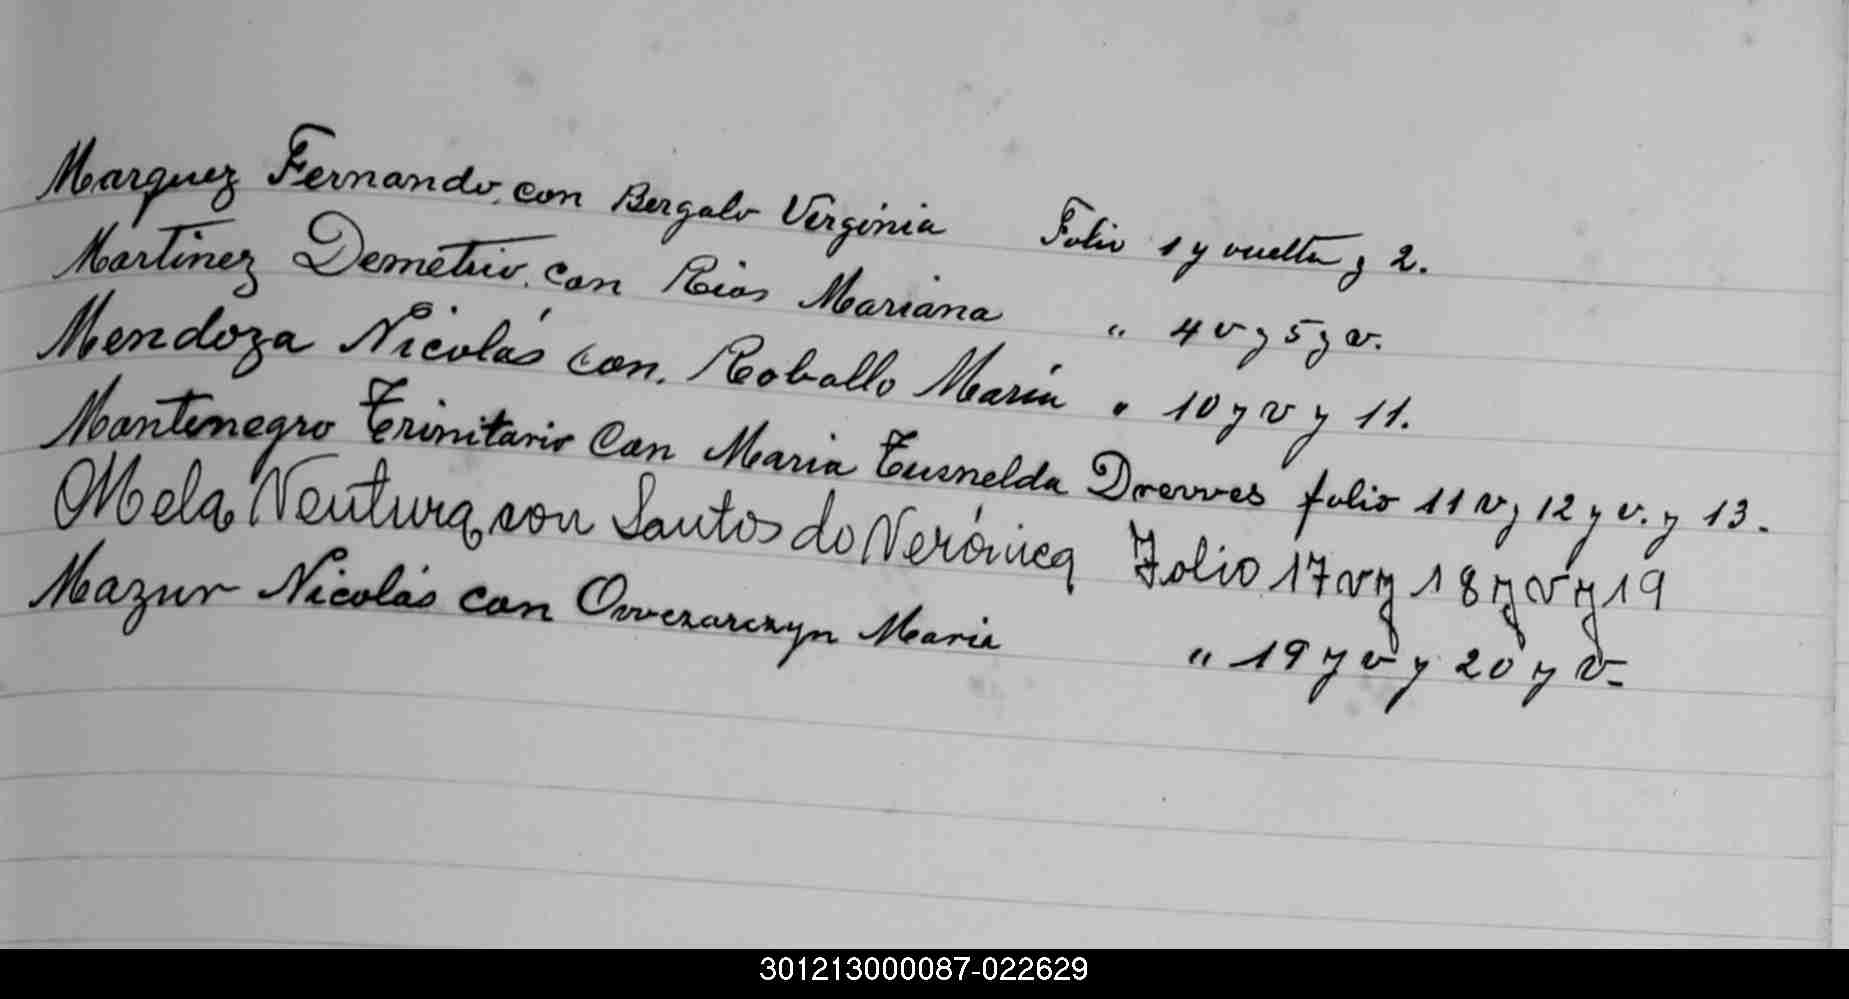 Marquez Fernando, con Bergalo Virginia Folio 1 y vuelta y 2.
Martinez Demetrio, con Rios Mariana " 4 v y 5 y v.
Mendoza Nicolás con. Roballo María " 10 y v y 11.
Montenegro Trinitario Con Maria Tusnelda Drewes folio 11 v y 12 y v. y 13.
Mela Ventura con Santos do Verónica Folio 17 v y 18 y v y 19
Mazur Nicolás con Owczarczyn Maria " 19 y v y 20 y v.
301213000087-022629